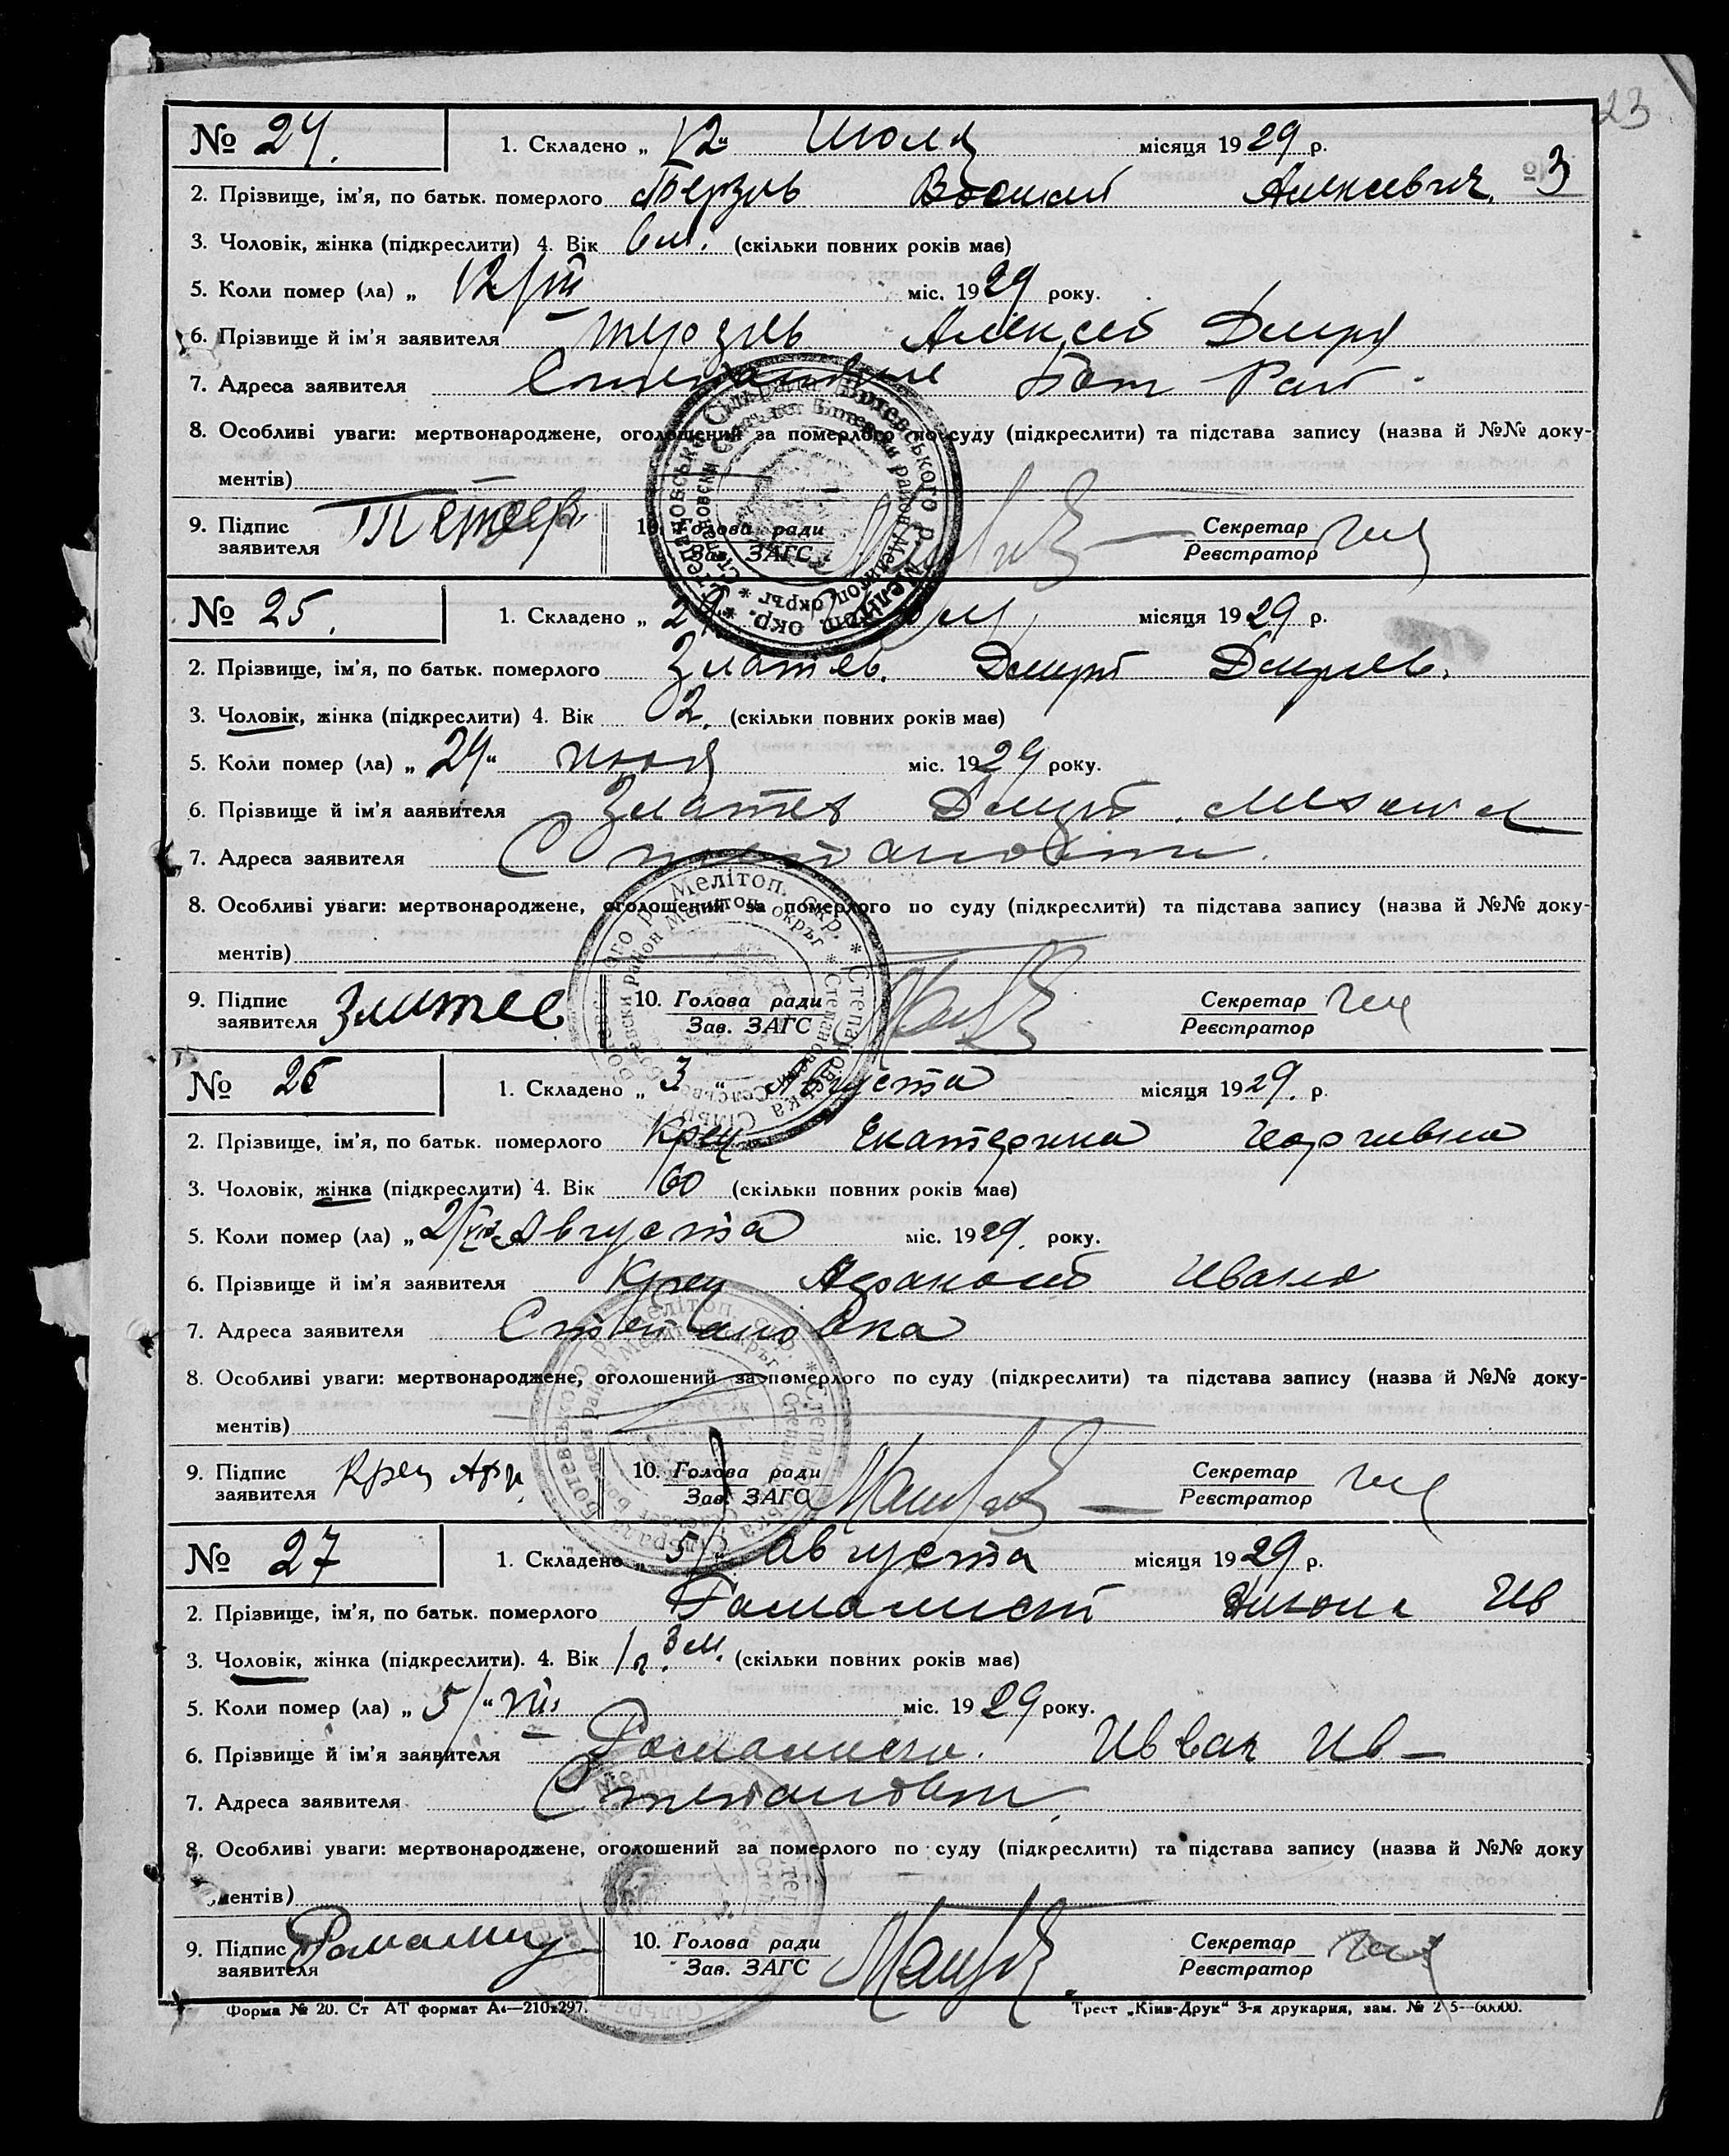 23
№ 24. 1. Складено „ 12 " Июля місяця 1929 р.
3
2. Прізвище, ім'я, по батьк. померлого Терзив Василий Алексевич.
3. Чоловік, жінка (підкреслити) 4. Вік 6 м. (скільки повних років має)
5. Коли помер (ла) „ 12/VII міс. 1929 року.
6. Прізвище й ім'я заявителя Терзив Алексей Дмитр
7. Адреса заявителя Степановке Бот Рай.
8. Особливі уваги: мертвонароджене, оголошений за померлого по суду (підкреслити) та підстава запису (назва й №№ доку-
ментів)
9. Підпис заявителя 10. Голова ради Зав. ЗАГС Секретар Реєстратор
№ 25. 1. Складено „ 2 місяця 1929 р.
2. Прізвище, ім'я, по батьк. померлого Златев. Дмитр Дмитриев.
3. Чоловік, жінка (підкреслити) 4. Вік 2. (скільки повних років має)
5. Коли помер (ла) „ 24 " июля міс. 1929 року.
6. Прізвище й ім'я ааявителя Златев Дмитр Михаил
7. Адреса заявителя Степановки.
8. Особливі уваги: мертвонароджене, оголошений за померлого по суду (підкреслити) та підстава запису (назва й №№ доку-
ментів)
9. Підпис заявителя Златев 10. Голова ради Зав. ЗАГС Секретар Реєстратор
№ 26 1. Складено „ 3 " Августа місяця 1929. р.
2. Прізвище, ім'я, по батьк. померлого Крец Екатерина Георгивна
3. Чоловік, жінка (підкреслити) 4. Вік 60 (скільки повних років має)
5. Коли помер (ла) „ 2/VIII Августа міс. 1929. року.
6. Прізвище й ім'я заявителя Крец Ивано
7. Адреса заявителя Степановка
8. Особливі уваги: мертвонароджене, оголошений за померлого по суду (підкреслити) та підстава запису (назва й №№ доку-
ментів)
9. Підпис заявителя Крец 10. Голова ради Зав. ЗАГС Секретар Реєстратор
№ 27 1. Складено „ 5 " августа місяця 1929 р.
2. Прізвище, ім'я, по батьк. померлого Ив
3. Чоловік, жінка (підкреслити). 4. Вік 1 г. 3 м. (скільки повних років має)
5. Коли помер (ла) „ 5 " VIII міс. 1929 року.
6. Прізвище й ім'я заявителя Ив
7. Адреса заявителя Степановки.
8. Особливі уваги: мертвонароджене, оголошений за померлого по суду (підкреслити) та підстава запису (назва й №№ доку
ментів)
9. Підпис заявителя 10. Голова ради Зав. ЗАГС Секретар Реєстратор
Форма № 20. Ст АТ формат А4—210х297. Трест „Київ-Друк" 3-я друкарня, зам. №